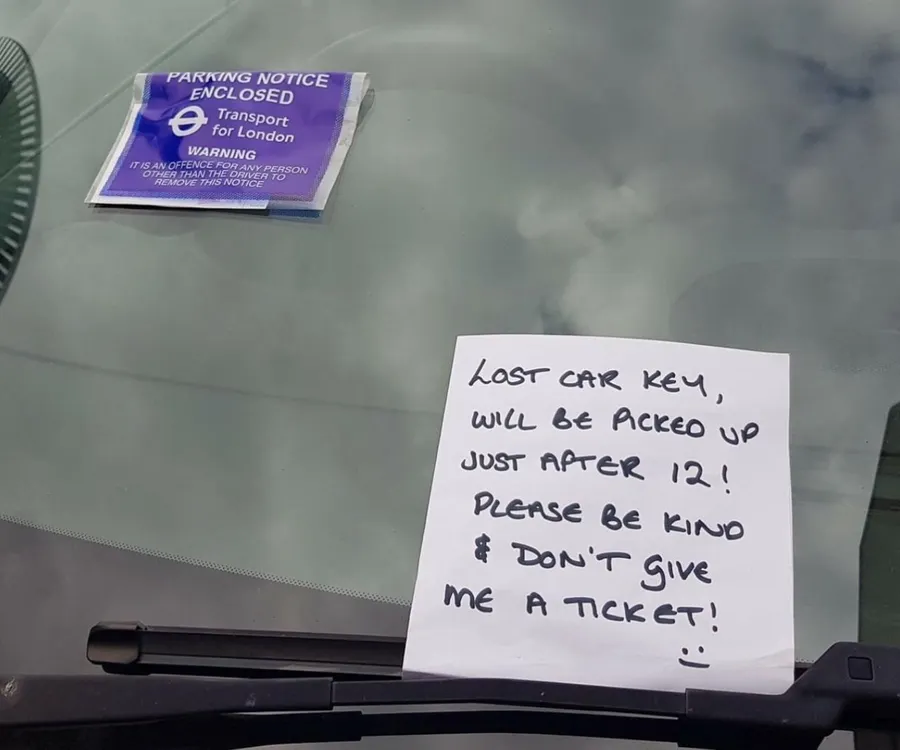 PARKING NOTICE
ENCLOSED
Transport
for London
WARNING
IT IS AN OFFENCE FOR ANY PERSON
OTHER THAN THE DRIVER TO
REMOVE THIS NOTICE
LOST CAR KEY,
WILL BE PICKED UP
JUST AFTER 12!
PLEASE BE KIND
& DON'T GIVE
ME A TICKET!
:)